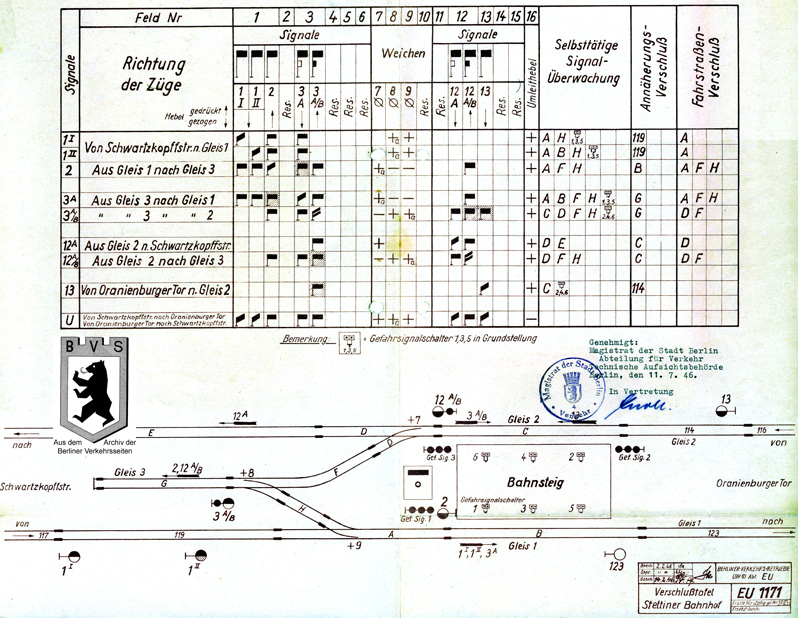 Feld Nr 1 2 3 4 5 6 7 8 9 10 11 12 13 14 15 16
Signale
Signale
Weichen
Signale
Richtung
der Züge
Selbsttätige
Signal-
Überwachung
Annäherungs-
verschluß
Fahrstraßen-
Verschluß
Umleithebel
Hebel gedrückt
gezogen
1 I 1 II 2 Res. 3 A 3 A/B Res. Res. Res. 7 8 9 Res. Res. 12 A 12 A/B 13 Res. Res.
1 I Von Schwartzkopffstr. n. Gleis 1 + A H 1,3,5 119 A
1 II + A B H 1,3,5 119 A
2 Aus Gleis 1 nach Gleis 3 + A F H B A F H
3A Aus Gleis 3 nach Gleis 1 + A B F H 1,3,5 G A F H
3 A/B " " 3 " " 2 + C D F H 2,4,6 G D F
12A Aus Gleis 2 n. Schwartzkopffstr. + D E C D
12 A/B Aus Gleis 2 nach Gleis 3 + D F H C D F
13 Von Oranienburger Tor n. Gleis 2 + C 2,4,6 114
U Von Schwartzkopffstr. nach Oranienburger Tor
Von Oranienburger Tor nach Schwartzkopffstr.
Bemerkung: 1,3,5 = Gefahrsignalschalter 1,3,5 in Grundstellung
Genehmigt:
Magistrat der Stadt Berlin
Abteilung für Verkehr
Technische Aufsichtsbehörde
Berlin, den 11. 7. 46.
In Vertretung
Magistrat der Stadt Berlin
Verkehr
BVS
Aus dem Archiv der
Berliner Verkehrsseiten
12 A/B
13
12A
3 A/B
Gleis 2
+7
E D C 114 116
nach
Gleis 2
von
Get. Sig. 3
Get. Sig. 2
Gleis 3
2,12 A/B
+8
F
G
Schwartzkopffstr.
3 A/B
H
6 4 2
Bahnsteig
Gefahrsignalschalter
1 3 5
Oranienburger Tor
2
Get. Sig. 1
von
117 119 A B 123
Gleis 1
nach
+9
1 I, 1 II, 3 A
Gleis 1
1 I
1 II
123
BERLINER-VERKEHRS-BETRIEBE
EU
Verschlußtafel
Stettiner Bahnhof
EU 1171